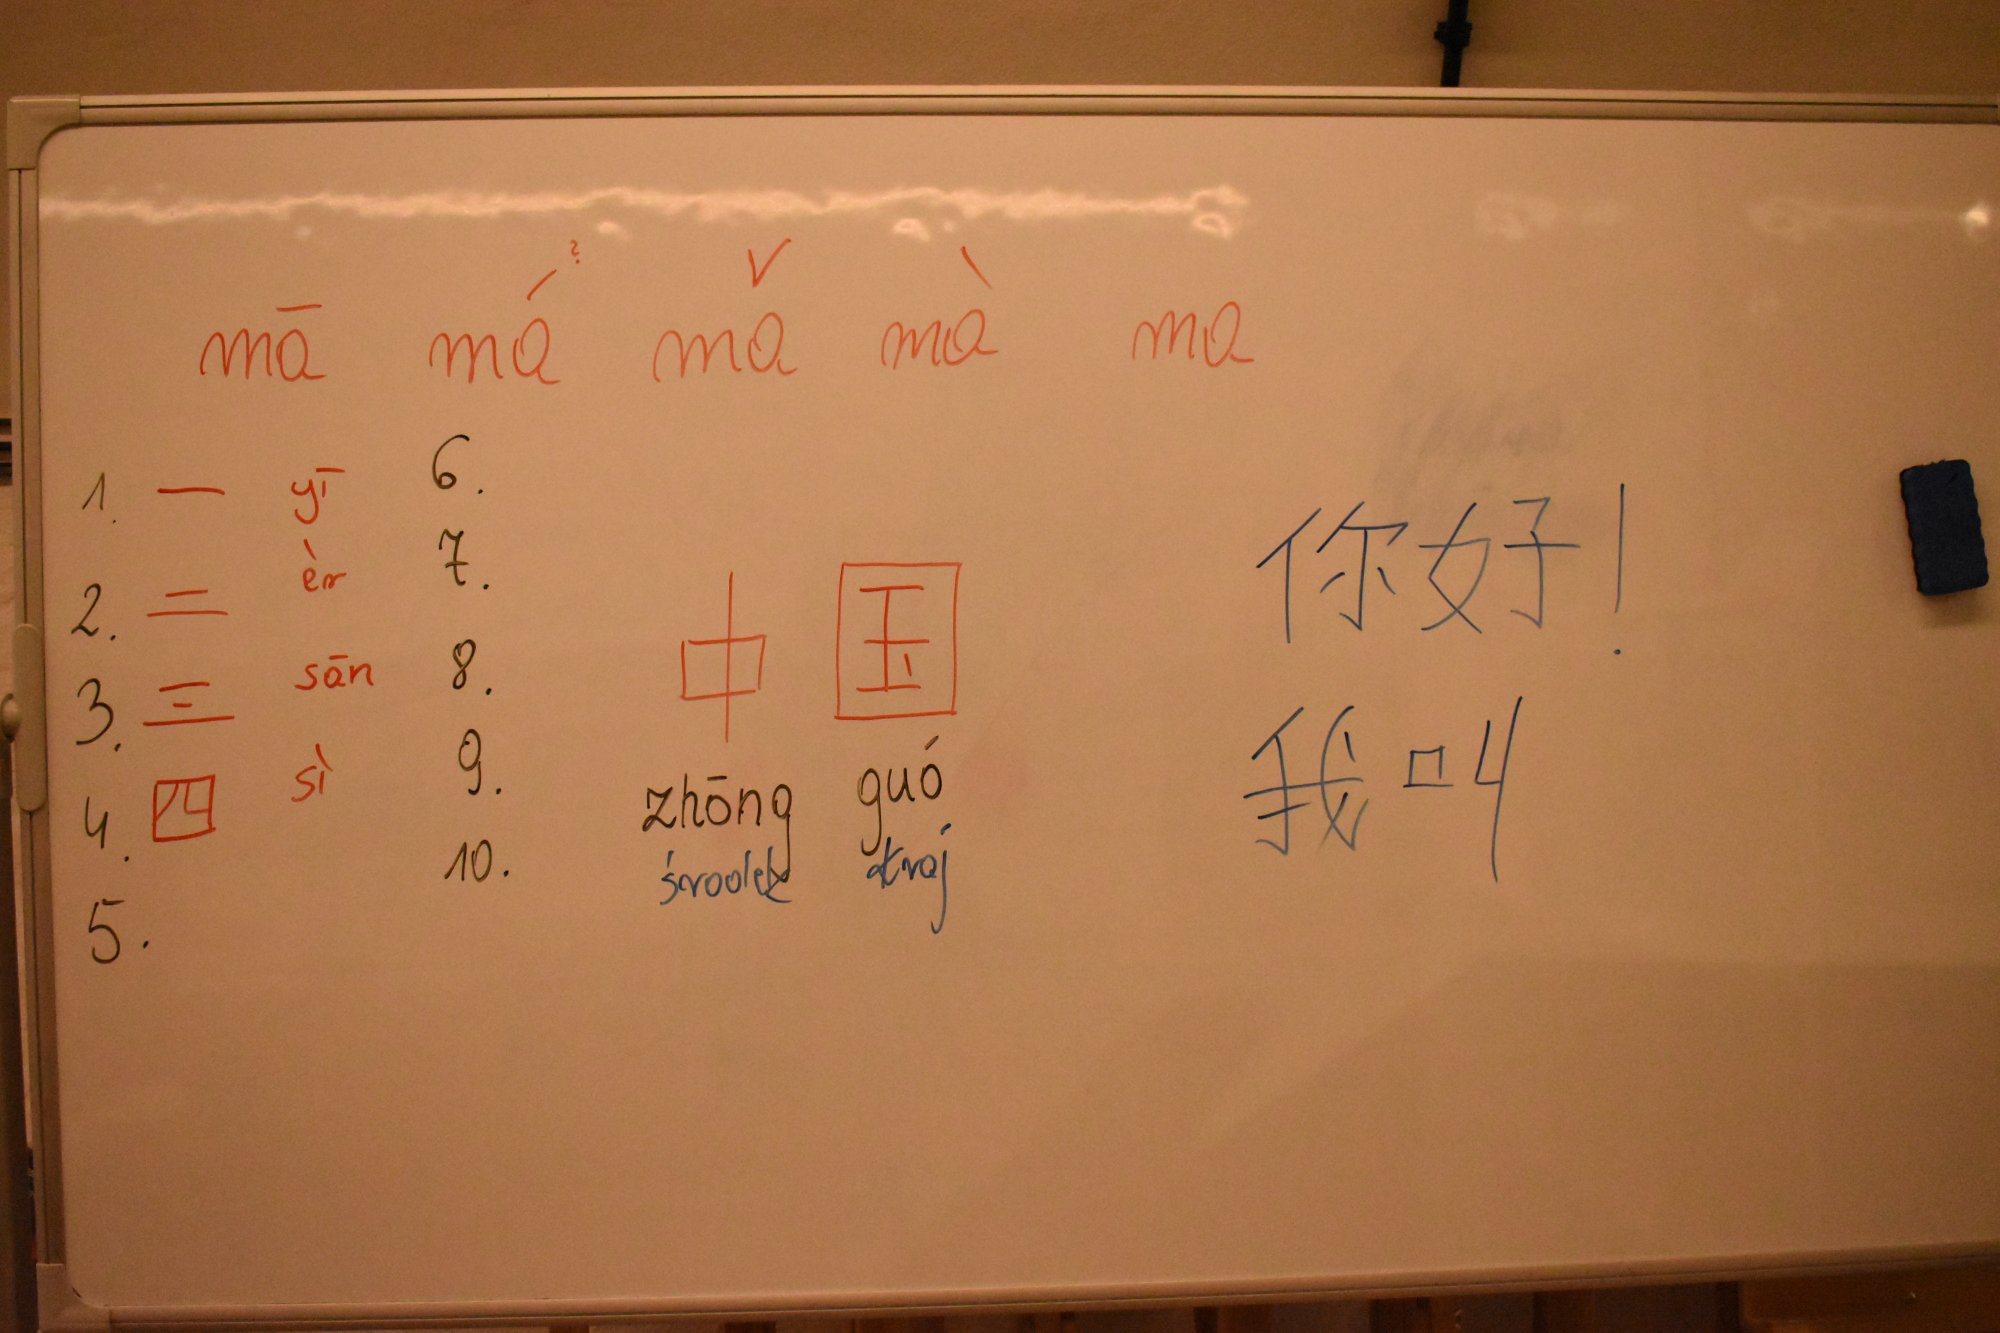 mā má ? mǎ mà ma
1. 一 yī
2. 二 èr
3. 三 sān
4. 四 sì
5.
6.
7.
8.
9.
10.
中 国
zhōng guó
środek kraj
你好!
我叫